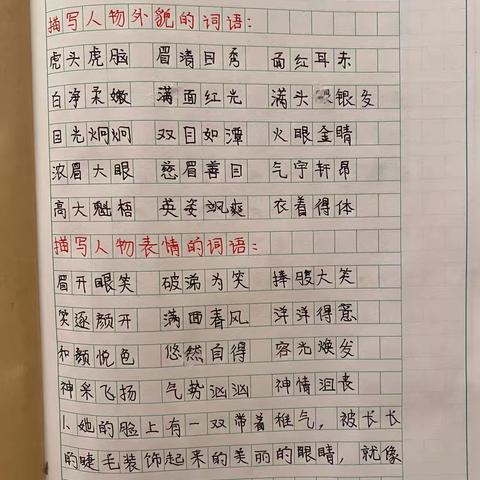 描写人物外貌的词语:
虎头虎脑 眉清目秀 面红耳赤
白净柔嫩 满面红光 满头银发
目光炯炯 双目如潭 火眼金睛
浓眉大眼 慈眉善目 气宇轩昂
高大魁梧 英姿飒爽 衣着得体
描写人物表情的词语:
眉开眼笑 破涕为笑 捧腹大笑
笑逐颜开 满面春风 洋洋得意
和颜悦色 悠然自得 容光焕发
神采飞扬 气势汹汹 神情沮丧
1、她的脸上有一双带着稚气，被长长
的睫毛装饰起来的美丽的眼睛，就像